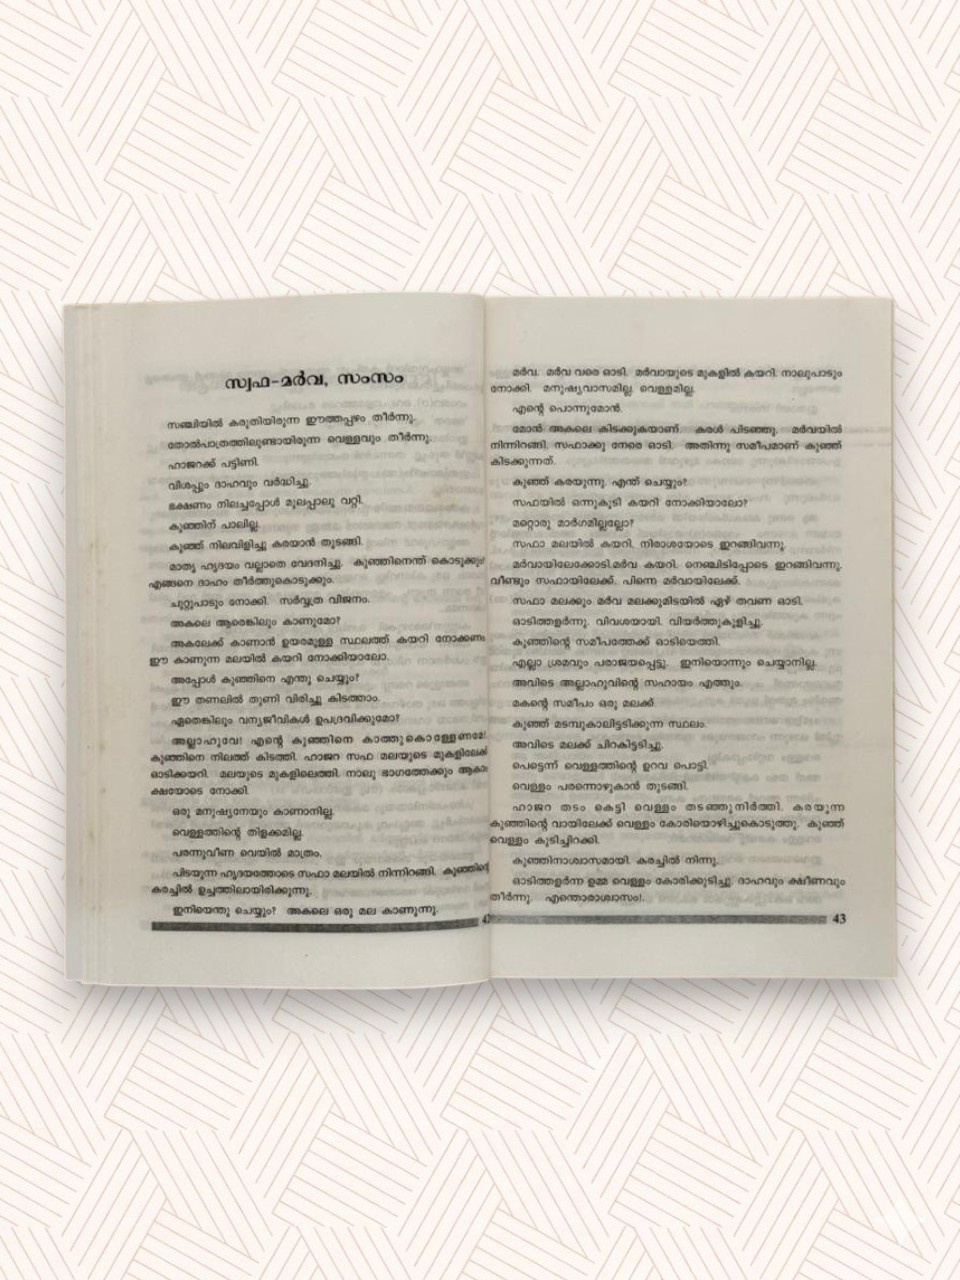 സ്വഫ-മർവ, സംസം
സഞ്ചിയിൽ കരുതിയിരുന്ന ഈത്തപ്പഴം തീർന്നു.
തോൽപാത്രത്തിലുണ്ടായിരുന്ന വെള്ളവും തീർന്നു.
ഹാജറക്ക് പട്ടിണി.
വിശപ്പും ദാഹവും വർദ്ധിച്ചു.
ഭക്ഷണം നിലച്ചപ്പോൾ മുലപ്പാലു വറ്റി.
കുഞ്ഞിന് പാലില്ല.
കുഞ്ഞ് നിലവിളിച്ചു കരയാൻ തുടങ്ങി.
മാതൃ ഹൃദയം വല്ലാതെ വേദനിച്ചു. കുഞ്ഞിനെന്ത് കൊടുക്കും?
എങ്ങനെ ദാഹം തീർത്തുകൊടുക്കും.
ചുറ്റുപാടും നോക്കി. സർവ്വത്ര വിജനം.
അകലെ ആരെങ്കിലും കാണുമോ?
അകലേക്ക് കാണാൻ ഉയരമുള്ള സ്ഥലത്ത് കയറി നോക്കണം
ഈ കാണുന്ന മലയിൽ കയറി നോക്കിയാലോ.
അപ്പോൾ കുഞ്ഞിനെ എന്തു ചെയ്യും?
ഈ തണലിൽ തുണി വിരിച്ചു കിടത്താം.
ഏതെങ്കിലും വന്യജീവികൾ ഉപദ്രവിക്കുമോ?
അല്ലാഹുവേ! എന്റെ കുഞ്ഞിനെ കാത്തുകൊള്ളേണമേ!
കുഞ്ഞിനെ നിലത്ത് കിടത്തി. ഹാജറ സഫ മലയുടെ മുകളിലേക്ക്
ഓടിക്കയറി. മലയുടെ മുകളിലെത്തി. നാലു ഭാഗത്തേക്കും ആകാം
ക്ഷയോടെ നോക്കി.
ഒരു മനുഷ്യനേയും കാണാനില്ല.
വെള്ളത്തിന്റെ തിളക്കമില്ല.
പരന്നുവീണ വെയിൽ മാത്രം.
പിടയുന്ന ഹൃദയത്തോടെ സഫാ മലയിൽ നിന്നിറങ്ങി. കുഞ്ഞിന്റെ
കരച്ചിൽ ഉച്ചത്തിലായിരിക്കുന്നു.
ഇനിയെന്തു ചെയ്യും? അകലെ ഒരു മല കാണുന്നു.
മർവ. മർവ വരെ ഓടി. മർവായുടെ മുകളിൽ കയറി. നാലുപാടും
നോക്കി. മനുഷ്യവാസമില്ല. വെള്ളമില്ല.
എന്റെ പൊന്നുമോൻ.
മോൻ അകലെ കിടക്കുകയാണ്. കരൾ പിടഞ്ഞു. മർവയിൽ
നിന്നിറങ്ങി. സഫാക്കു നേരെ ഓടി. അതിന്നു സമീപമാണ് കുഞ്ഞ്
കിടക്കുന്നത്.
കുഞ്ഞ് കരയുന്നു. എന്ത് ചെയ്യും?
സഫയിൽ ഒന്നുകൂടി കയറി നോക്കിയാലോ?
മറ്റൊരു മാർഗമില്ലല്ലോ?
സഫാ മലയിൽ കയറി. നിരാശയോടെ ഇറങ്ങിവന്നു.
മർവായിലേക്കോടി.മർവ കയറി. നെഞ്ചിടിപ്പോടെ ഇറങ്ങിവന്നു.
വീണ്ടും സഫായിലേക്ക്. പിന്നെ മർവായിലേക്ക്.
സഫാ മലക്കും മർവ മലക്കുമിടയിൽ ഏഴ് തവണ ഓടി.
ഓടിത്തളർന്നു. വിവശയായി. വിയർത്തുകുളിച്ചു.
കുഞ്ഞിന്റെ സമീപത്തേക്ക് ഓടിയെത്തി.
എല്ലാ ശ്രമവും പരാജയപ്പെട്ടു. ഇനിയൊന്നും ചെയ്യാനില്ല.
അവിടെ അല്ലാഹുവിന്റെ സഹായം എത്തും.
മകന്റെ സമീപം ഒരു മലക്ക്.
കുഞ്ഞ് മടമ്പുകാലിട്ടടിക്കുന്ന സ്ഥലം.
അവിടെ മലക്ക് ചിറകിട്ടടിച്ചു.
പെട്ടെന്ന് വെള്ളത്തിന്റെ ഉറവ പൊട്ടി.
വെള്ളം പരന്നൊഴുകാൻ തുടങ്ങി.
ഹാജറ തടം കെട്ടി വെള്ളം തടഞ്ഞുനിർത്തി. കരയുന്ന
കുഞ്ഞിന്റെ വായിലേക്ക് വെള്ളം കോരിയൊഴിച്ചുകൊടുത്തു. കുഞ്ഞ്
വെള്ളം കുടിച്ചിറക്കി.
കുഞ്ഞിനാശ്വാസമായി. കരച്ചിൽ നിന്നു.
ഓടിത്തളർന്ന ഉമ്മ വെള്ളം കോരിക്കുടിച്ചു. ദാഹവും ക്ഷീണവും
തീർന്നു. എന്തൊരാശ്വാസം!.
43